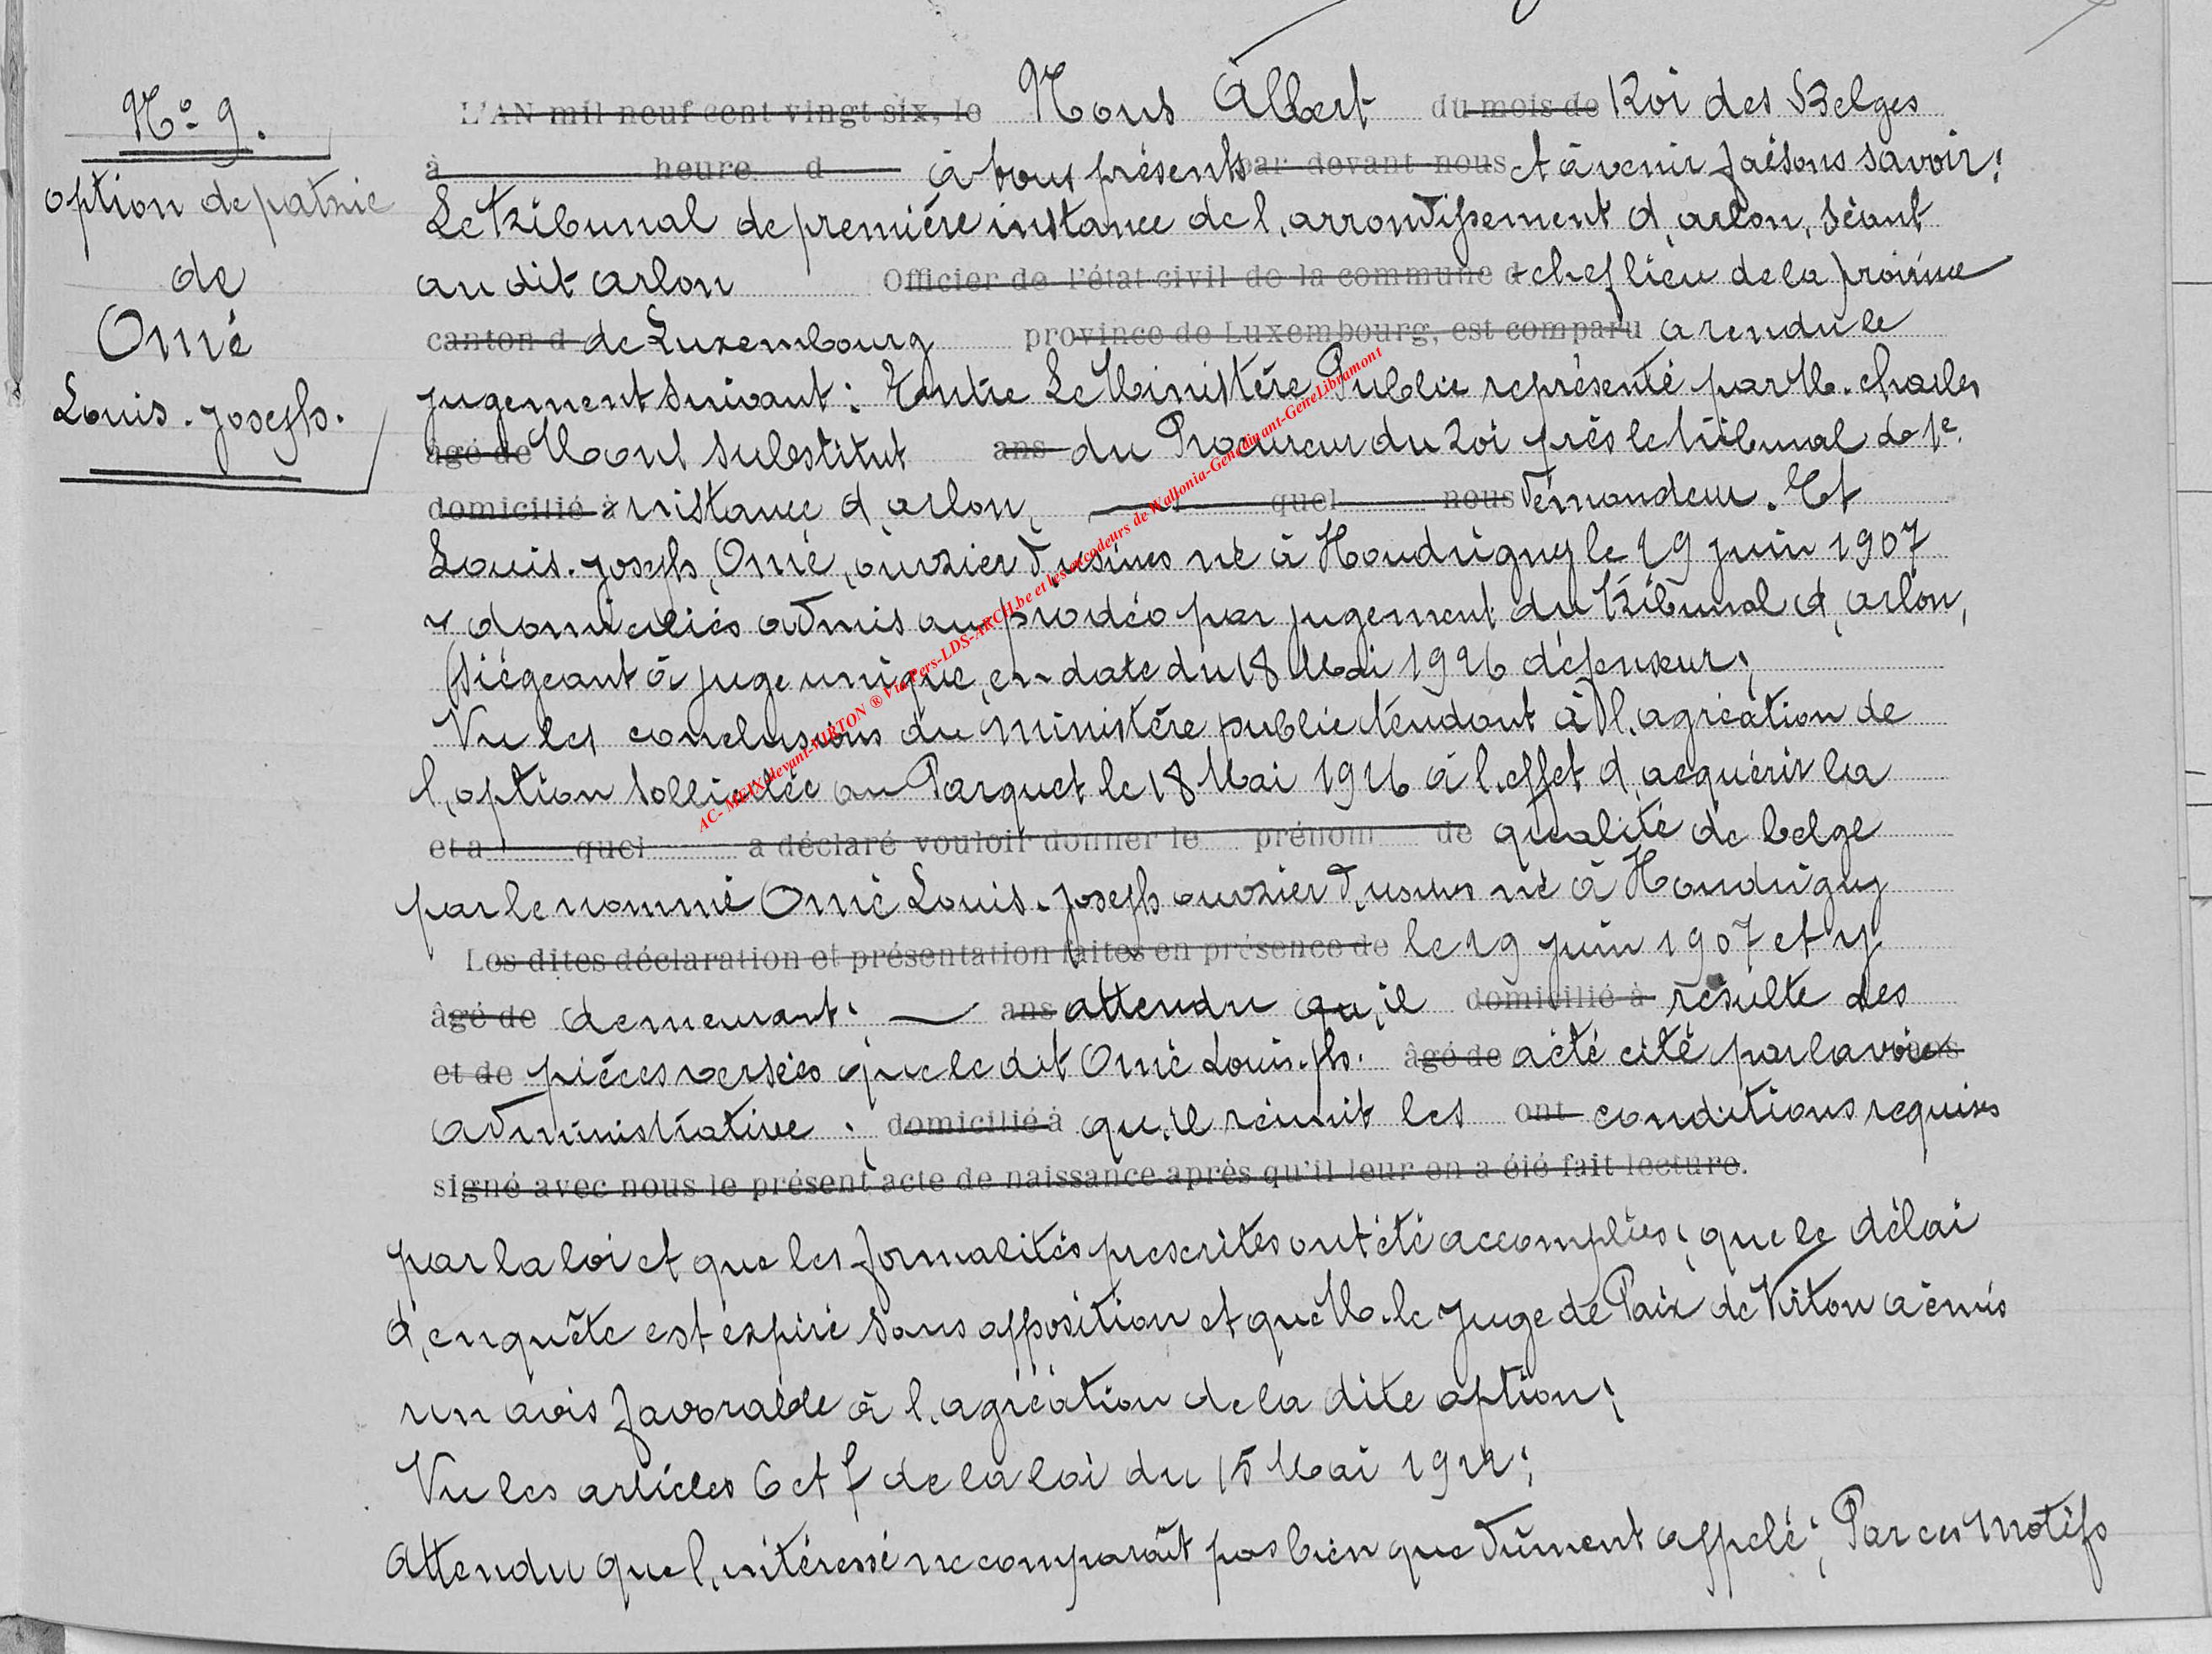 N° 9.
option de patrie
de
Omé
Louis. Joseph.
L'AN mil neuf cent vingt-six, le Nous Albert du mois de Roi des Belges
à heure d à tous présents par devant nous et à venir faisons savoir;
Le tribunal de première instance de l, arrondissement d, arlon, séant
au dit arlon Officier de l'état civil de la commune d chef lieu de la province
canton d de Luxembourg province de Luxembourg, est comparu a rendu le
jugement suivant: Entre Le Ministère Public représenté par M. charles
âgé de substitut ans du Procureur du Roi près le tribunal de 1e.
domicilié à instance d, arlon, quel nous demandeur. Et
Louis. Joseph, Omé, ouvrier d'usines né à Houdrigny le 19 juin 1907
y domiciliés admis au prodéo par jugement du tribunal d, arlon,
(siégeant à juge unique, en date du 18 Mai 1926 défenseur;
Vu les conclusions du ministère public tendant à l, agréation de
l, option sollicitée au Parquet le 18 Mai 1926 à l, effet d, acquérir la
et a quel a déclaré vouloir donner le prénom de qualité de belge
par le nommé Omé Louis. Joseph ouvrier d, usines né à Houdrigny
Les dites déclaration et présentation faites en présence de le 19 juin 1907 et y
âgé de demeurant; ans attendu qu, il domicilié à résulte des
et de pièces versées que le dit Omé Louis. Jh. âgé de a été cité par la voie
administrative; domicilié à qu, il réunit les ont conditions requises
signé avec nous le présent acte de naissance après qu'il leur en a été fait lecture.
par la loi et que les formalités prescrites ont été accomplies; que le délai
d, enquête est expiré sans opposition et que M. le Juge de Paix de Virton a émis
un avis favorable à l, agréation de la dite option;
Vu les articles 6 et de la loi du 15 Mai 1922;
Attendu que l, intéressé ne comparaît pas bien que dûment appelé; Par ces motifs
AC- MEIX-devant-VIRTON ® Via Pers-LDS-ARCH.be et les encodeurs de Wallonia-Genedinant-GeneLibramont